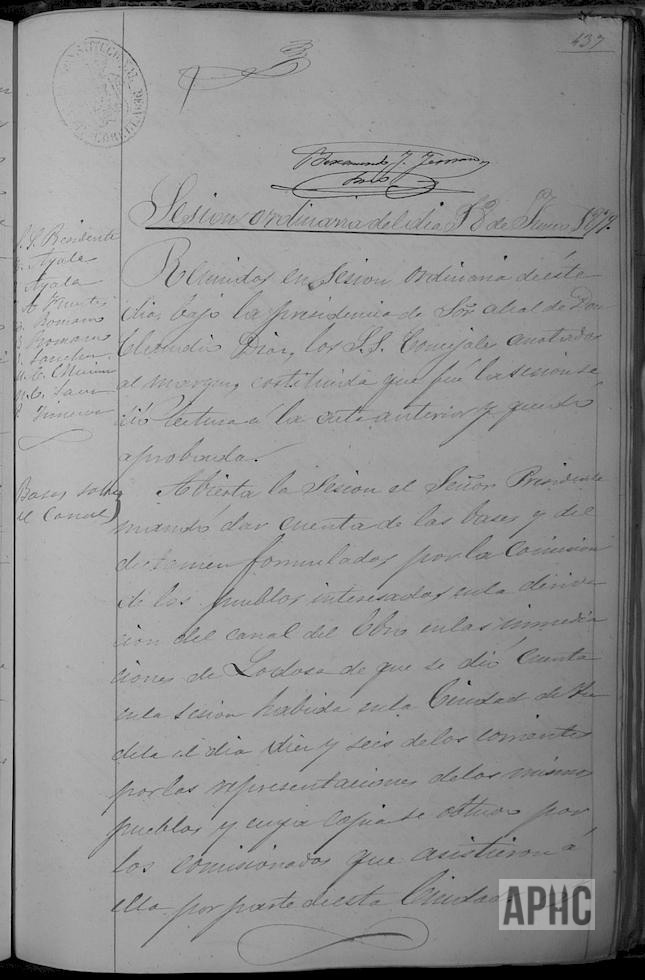 137
Sesion ordinaria del dia 18 de Junio 1879.
S. S. Presidente
Ayala
Ayala
A. Fuertes
Romano
Romano
Sanchez
M. C.
M. C.
Reunidos en sesion ordinaria de éste
dia, bajo la presidencia de Sor. alcalde Don
Claudio Diaz, los S.S. Concejales anotados
al margen, costituida que fué la sesion se
dió lectura á la acta anterior y quedó
aprobada.
Bases sobre
el Canal
Abierta la Sesion el Señor Presidente
mandó dar cuenta de las bases y del
dictamen formulados por la Comision
de los pueblos interesados en la deriva
cion del canal del Ebro en las inmedia
ciones de Lodosa de que se dió cuenta
en la sesion habida en la Ciudad de Tu
dela el dia diez y seis de los corrientes
por las representaciones de los mismos
pueblos y cuya copia se obtuvo por
los comisionados que asistieron á
ella por parte de esta Ciudad, y
APHC